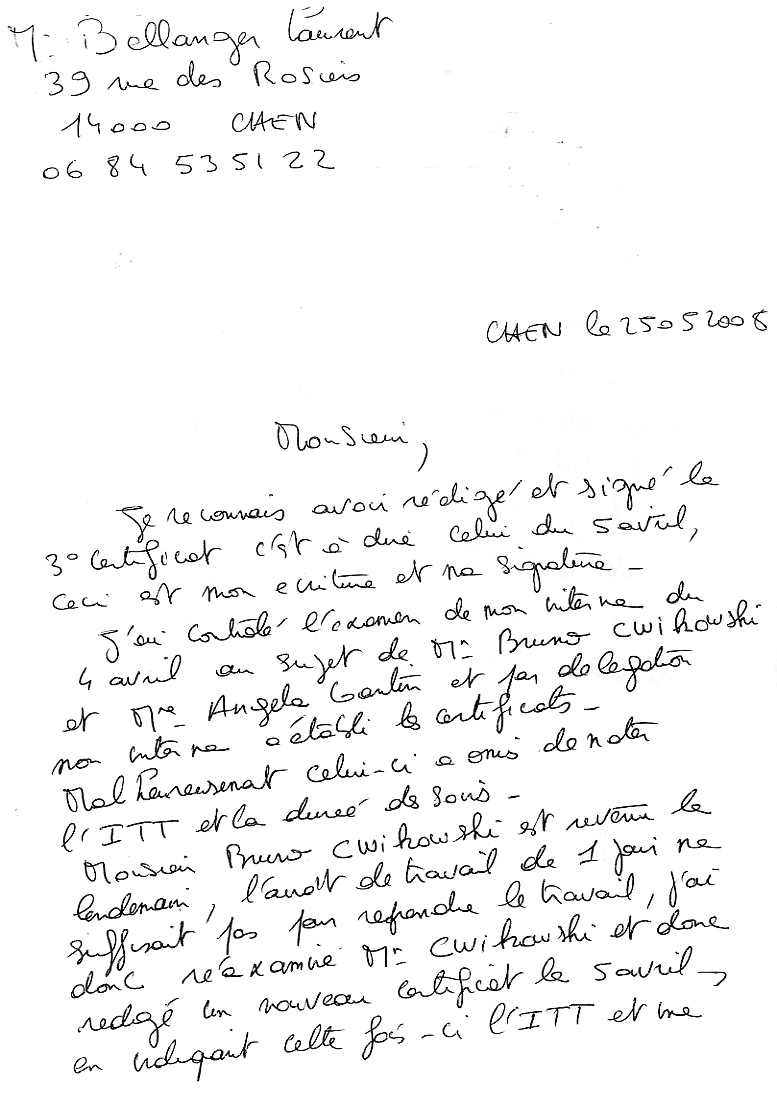 Mr Bellanger Laurent
39 rue des Rosiers
14000 CAEN
06 84 53 51 22
CAEN le 25 05 2008
Monsieur,
Je reconnais avoir rédigé et signé le
3° certificat c'est à dire celui du 5 avril,
ceci est mon ecriture et ma signature -
J'ai contrôlé l'examen de mon interne du
4 avril au sujet de Mr Bruno CWikowski
et Mme Angela Gantin et par délégation
mon interne a établi les certificats -
Malheureusement celui-ci a omis de noter
l'ITT et la durée de soins -
Monsieur Bruno CWikowski est revenu le
lendemain, l'arrêt de travail de 1 jour ne
suffisait pas pour reprendre le travail, j'ai
donc réexaminé Mr CWikowski et donc
redigé un nouveau certificat le 5 avril,
en indiquant cette fois-ci l'ITT et une